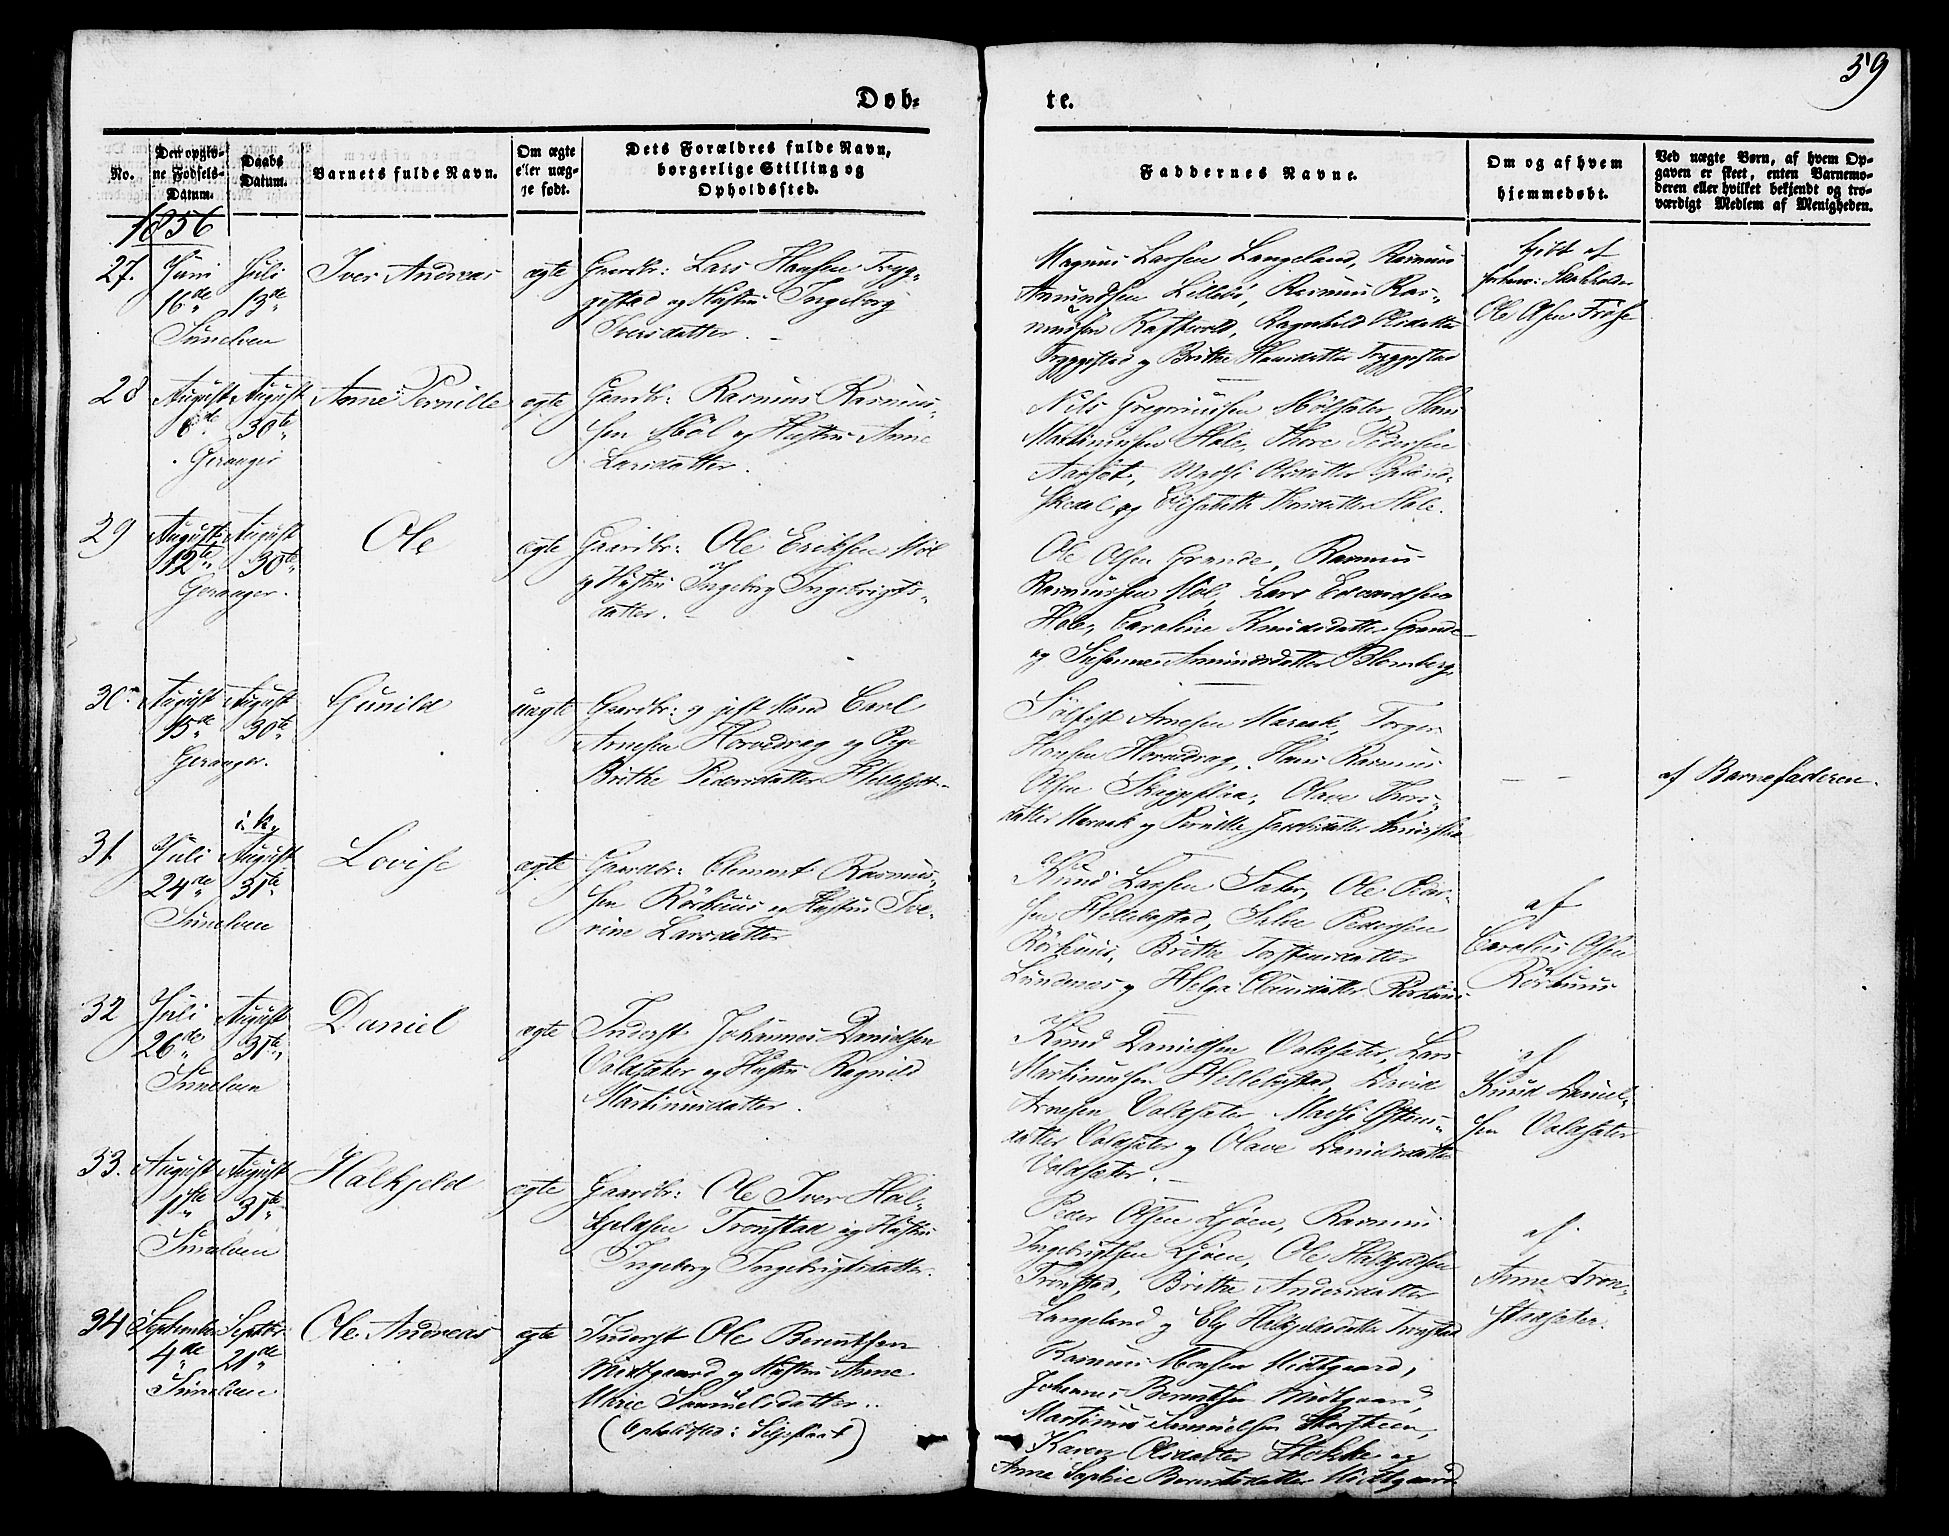 59
Døb-
te.
No.
Den opgiv-
ne Fødsels-
Datum.
Daabs
Datum.
Barnets fulde Navn.
Om ægte
eller uæg-
te født.
Dets Forældres fulde Navn,
borgerlige Stilling og
Opholdssted.
Faddernes Navne.
Om og af hvem
hjemmedøbt.
Ved uægte Børn, af hvem Op-
gaven er skeet, enten Barnemo-
deren eller hvilket bekjendt og tro-
værdigt Medlem af Menigheden.
1856
27.
Juni
16de
Sunelven
Juli
13de
Iver Andreas
ægte
Gaardbr: Lars Hansen Tryg-
gestad og Hustru Ingeborg
Iversdatter.
Magnus Larsen Langeland, Rasmus
Amundsen Lillebø, Rasmus Ras-
mussen Ragnhild Olsdatter
Tryggestad og Brithe Hansdatter Tryggestad
af
Ole Olsen
28
August
6te
Geranger
August
30te
Anne Pernille
ægte
Gaardbr: Rasmus Rasmus-
sen Møl og Hustru Anne
Larsdatter.
Nils Gregoriussen Hans
Martinussen Hole, Thore Pedersen
Olsdatter
og Elisabeth Hole.
29
August
12te
Geranger.
August
30te
Ole
ægte
Gaardbr: Ole Eriksen Møl
og Hustru Ingeborg Ingebrigts-
datter.
Ole Olsen Grande, Rasmus
Rasmussen Møl, Lars Edvardsen
Hole, Caroline Knudsdatter Grande
og Susanne Amundsdatter Blomberg.
30
August
15de
Geranger.
August
30te
Gunild
uægte
Gaardbr: og gift Mand Carl
Arnesen Horvedrag og Pige
Brithe Pedersdatter
Arnesen Maraak, Torger
Hansen Horvedrag, Hans Rasmus
Olsen Skageflaa, Olave Thors-
datter Maraak og Pernille Jacobsdatter
af Barnefaderen.
31
Juli
24de
Sunelven
i. K.
August
31te
Lovise
ægte
Gaardbr: Clement Rasmus-
sen Rørhuus og Hustru Se-
rine Larsdatter
Knud Larsen Sæter, Ole Peder-
sen Hellebostad, Pedersen
Rørhuus, Brithe Torstensdatter
Lundenæs og Helga Rørhuus
af
Carolus Olsen
Rørhuus
32
Juli
26de
Sunelven
August
31te
Daniel
ægte
Inderst Johannes Danielsen
Voldsæter og Hustru Ragnild
Martinusdatter.
Knud Danielsen Voldsæter, Lars
Martinussen Hellebostad, David
Arnesen Voldsæter, Madsi
datter Voldsæter og Olave Danielsdatter
Voldsæter.
af
Knud Daniel-
sen Voldsæter
33.
August
11te
Sunelven
August
31te
Halkjeld
ægte
Gaardbr: Ole Iver Hal-
kjeldsen Tronstad og Hustru
Ingeborg Ingebrigtsdatter.
Peder Olsen Ljøen, Rasmus
Ingebrigtsen Ljøen, Ole Halkjeldsen
Tronstad, Brithe Andersdatter
Langeland og Eli Halkjeldsdatter Tronstad
af
Anne Tron-
stadsæter.
34
September
4de
Sunelven
Septbr
21de
Ole Andreas
ægte
Inderst Ole Berentsen
Midtgaard og Hustru Anne
Marie Samuelsdatter.
(Opholdssted:
Rasmus Monsen Midtgaard,
Johannes Berentsen Midtgaard,
Martinus Samuelsen
Karen Olsdatter Stokke og
Anne Sophie Berentsdatter Midtgaard